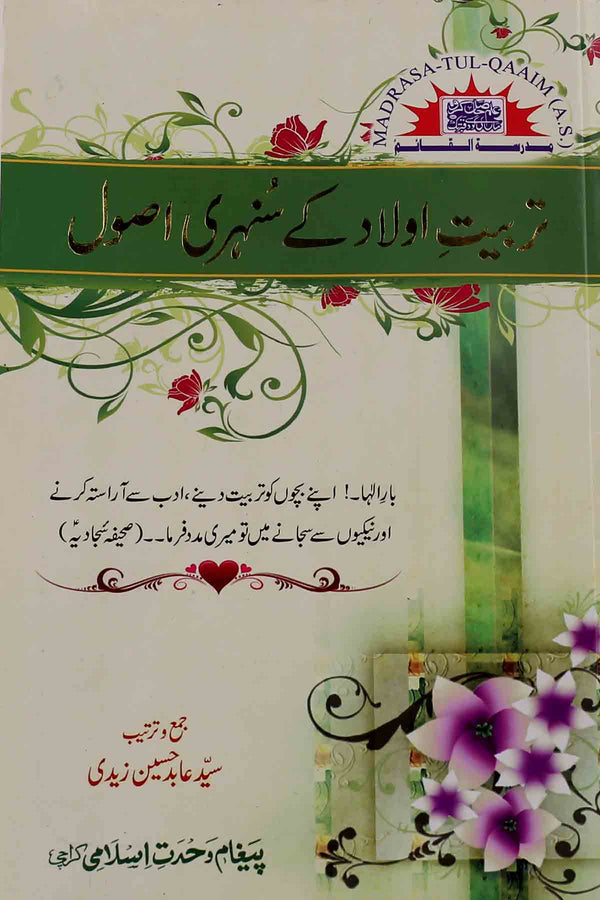 MADRASA-TUL-QAAIM (A.S.)
مدرسة القائم
تربیتِ اولاد کے سُنہری اصول
بارِ الٰہا۔! اپنے بچوں کو تربیت دینے، ادب سے آراستہ کرنے
اور نیکیوں سے سجانے میں تو میری مدد فرما۔۔ (صحیفہ سجادیہؑ)
جمع و ترتیب
سیّد عابد حسین زیدی
پیغام وحدتِ اسلامی کراچی